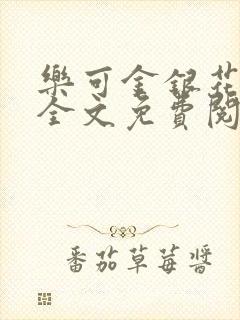 樂可金銀花
全文免費閱
番茄草莓醬